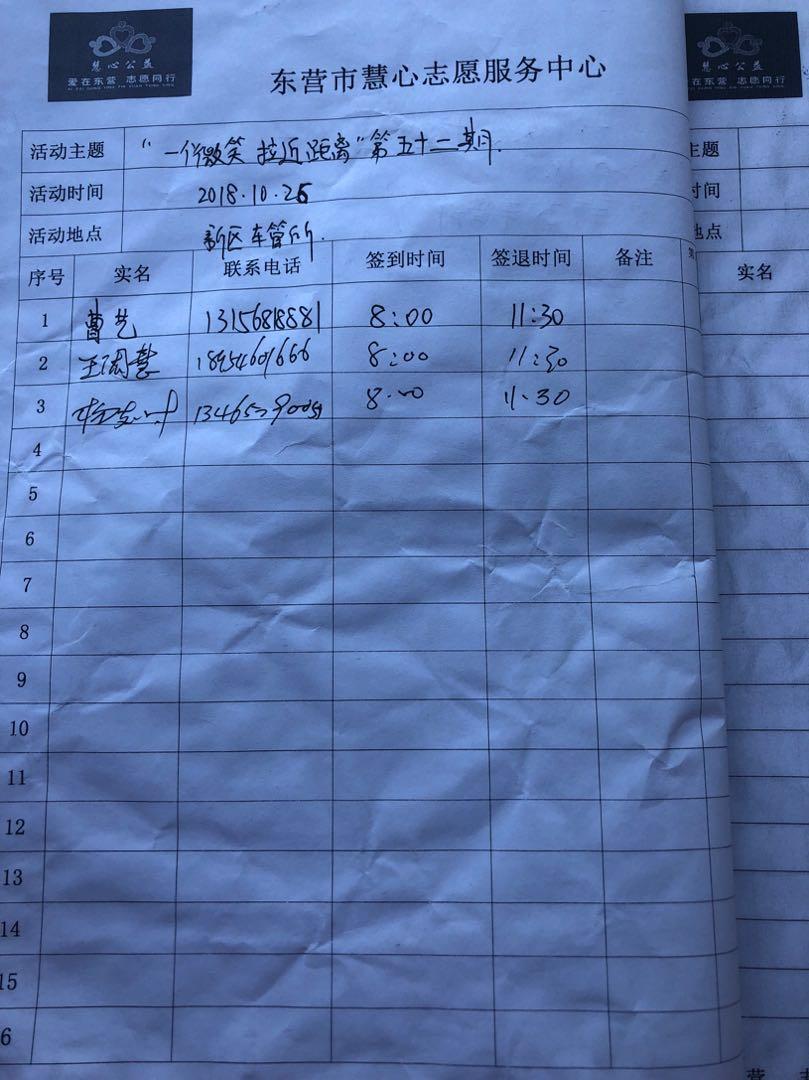 慧心公益
爱在东营 志愿同行
慧心公益
爱在东营 志愿同行
东营市慧心志愿服务中心
活动主题 "一个微笑 拉近距离"第五十二期.
活动时间 2018.10.26
活动地点 新区车管所.
序号 实名 联系电话 签到时间 签退时间 备注
1 曹艺 13156818881 8:00 11:30
2 王润慧 18954601666 8:00 11:30
3 8:00 11:30
4
5
6
7
8
9
10
11
12
13
14
15
6
主题
时间
地点
实名